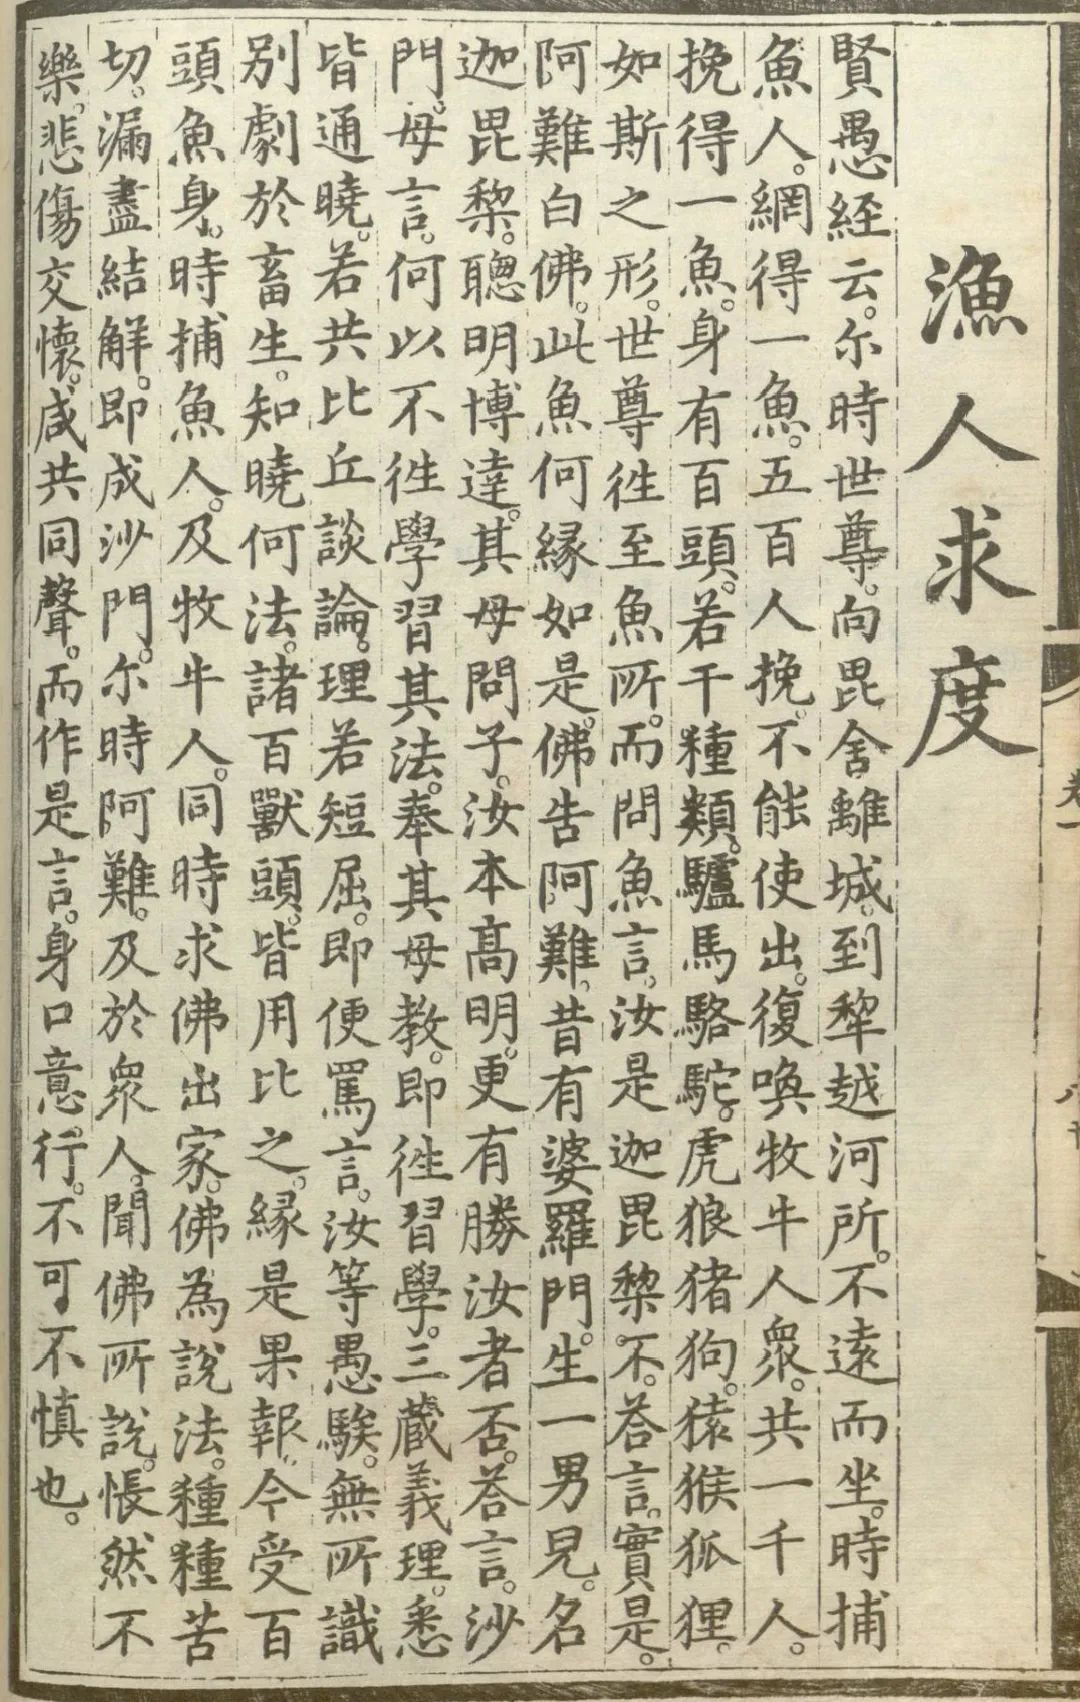 漁人求度
賢愚経云。尓時世尊。向毘舍離城。到犂越河所。不遠而坐。時捕
魚人。網得一魚。五百人挽。不能使出。復喚牧牛人衆。共一千人。
挽得一魚。身有百頭。若干種類。驢馬駱駝。虎狼猪狗。猿猴狐狸。
如斯之形。世尊徃至魚所。而問魚言。汝是迦毘棃不。荅言。實是。
阿難白佛。此魚何緣如是。佛告阿難。昔有婆羅門。生一男兒。名
迦毘棃。聰明博達。其母問子。汝本高明。更有勝汝者否。荅言。沙
門。母言。何以不徃學習其法。奉其母教。即徃習學。三藏義理。悉
皆通曉。若共比丘談論。理若短屈。即便罵言。汝等愚騃。無所識
别劇於畜生。知曉何法。諸百獸頭。皆用比之。緣是果報。今受百
頭魚身。時捕魚人。及牧牛人。同時求佛出家。佛為說法。種種苦
切。漏盡結解。即成沙門。尓時阿難。及於衆人。聞佛所說。悵然不
樂。悲傷交懷。咸共同聲。而作是言。身口意行。不可不慎也。
卷一